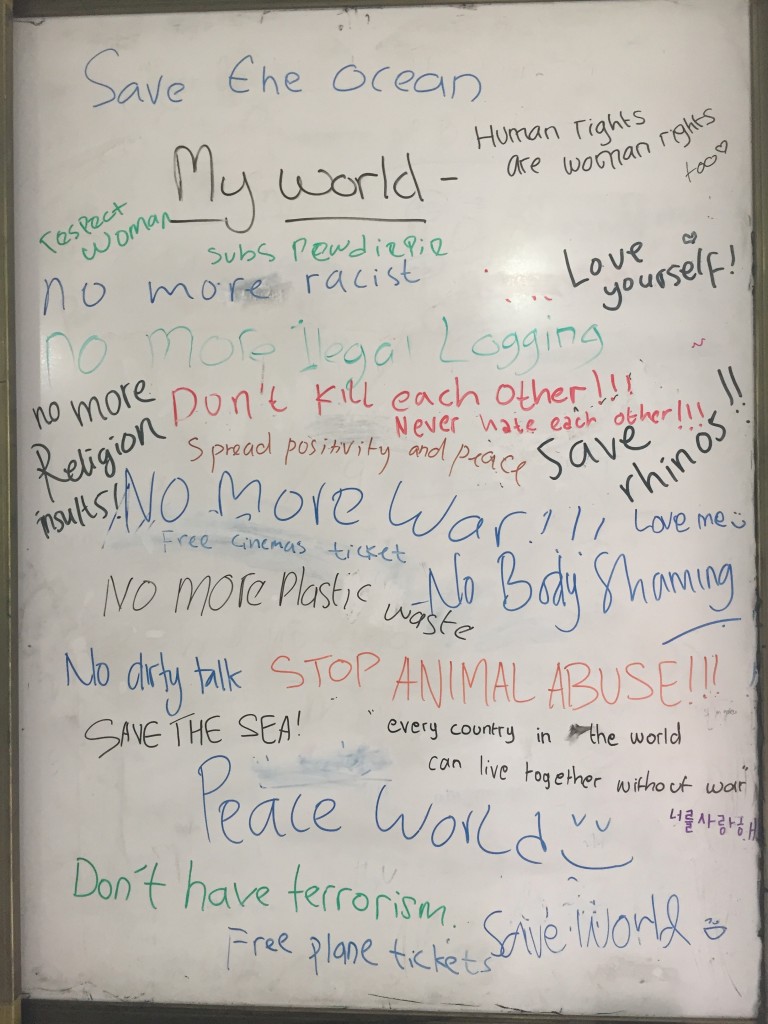 Save the ocean
Human rights
are woman rights
too♡
My world -
respect
woman
subs Pewdiepie
no more racist
Love
yourself!
no more Ilegal Logging
no more
Religion
insults!
Don't kill each other!!!
Never hate each other!!!
Spread positivity and peace
Save
rhinos!!
NO More War!!!!
Love me
Free cinemas ticket
NO MORE Plastic
waste
No Body Shaming
No dirty talk
STOP ANIMAL ABUSE!!!
SAVE THE SEA!
"every country in the world
can live together without war"
Peace World
너를 사랑해
Don't have terrorism.
Save World
Free plane tickets